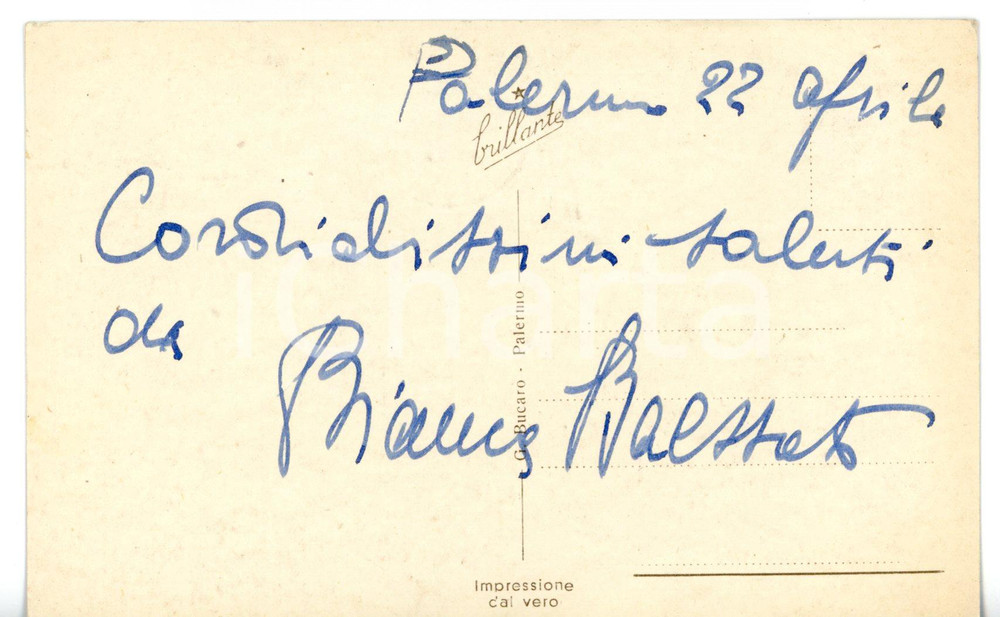 Palermo 22 aprile
brillante
Cordialissimi saluti
da
Bianca
G. Bucaro - Palermo
Impressione
dal vero
iCharta